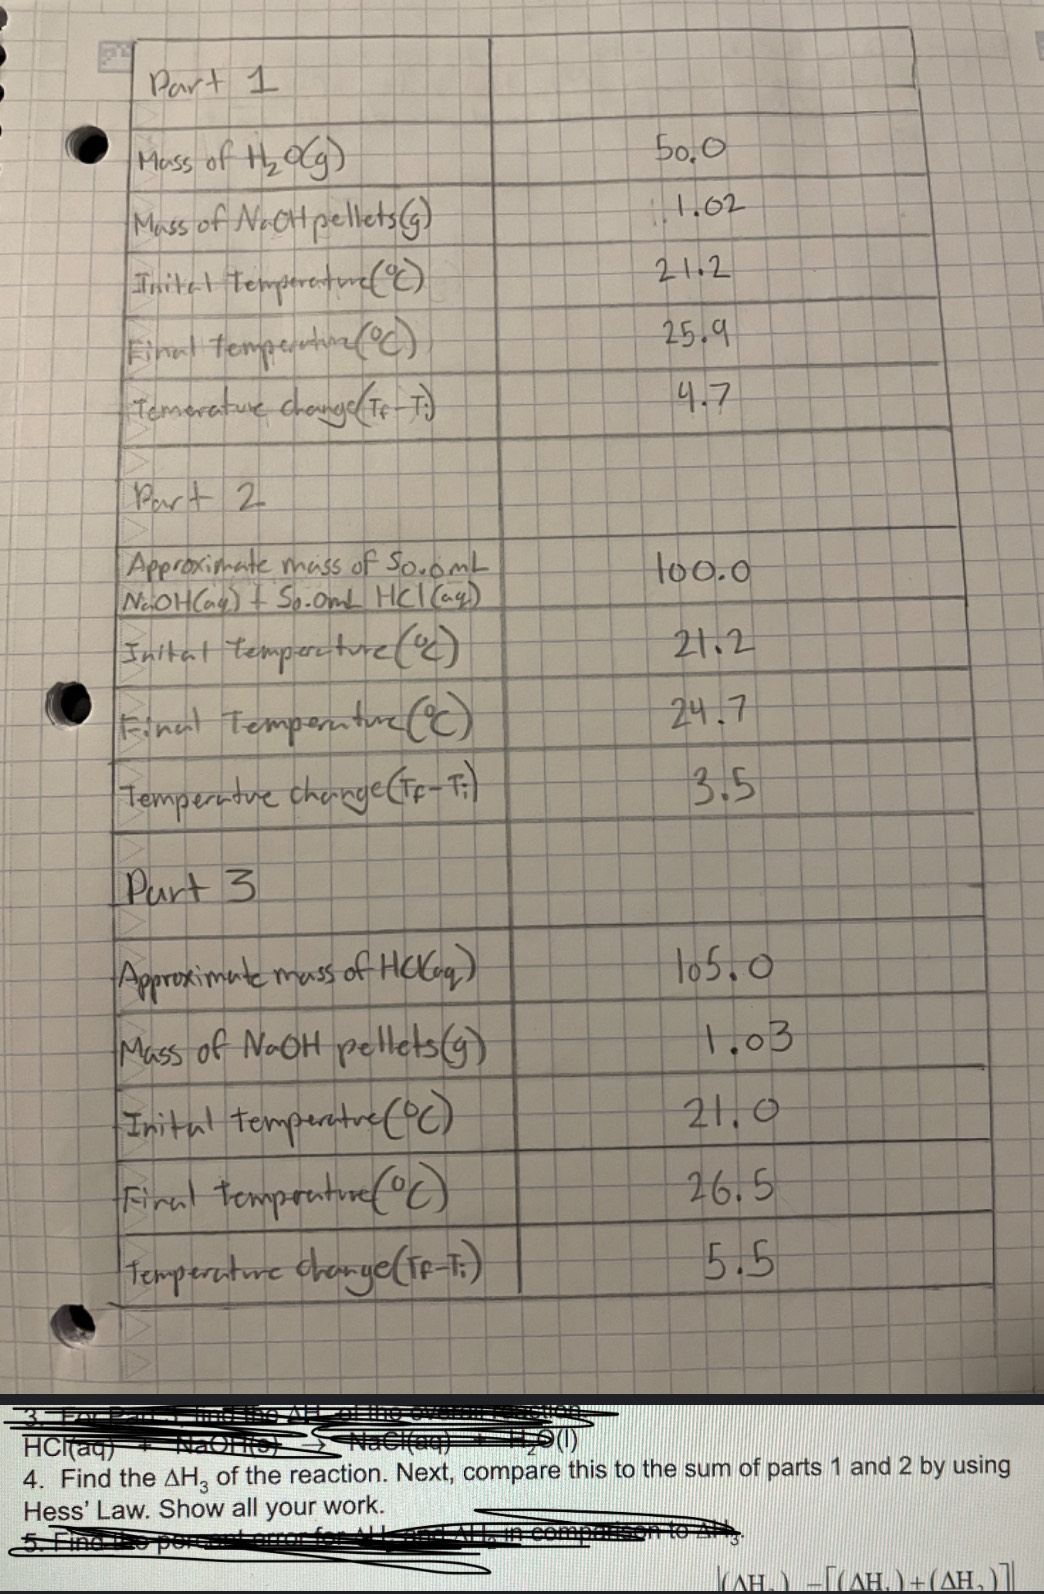 Part 1
Mass of H₂O(g) 50.0
Mass of NaOH pellets(g) 1.02
Inital Temperature(°C) 21.2
Final temperature(°C) 25.9
Temerature change(Tf-Ti) 4.7
Part 2
Approximate mass of 50.0mL
NaOH(aq) + 50.0mL HCl(aq) 100.0
Inital temperature(°C) 21.2
Final Temperature(°C) 24.7
Temperature change(Tf-Ti) 3.5
Part 3
Approximate mass of HCl(aq) 105.0
Mass of NaOH pellets(g) 1.03
Inital temperature(°C) 21.0
Final temperature(°C) 26.5
Temperature change(Tf-Ti) 5.5
3. For Part 3, find the ΔH of the overall reaction
HCl(aq) + NaOH(s) → NaCl(aq) + H₂O(l)
4. Find the ΔH₃ of the reaction. Next, compare this to the sum of parts 1 and 2 by using
Hess' Law. Show all your work.
5. Find the percent error for ΔH and ΔH₂ in comparison to ΔH₃.
|(ΔH₃) -[(ΔH₁)+(ΔH₂)]|